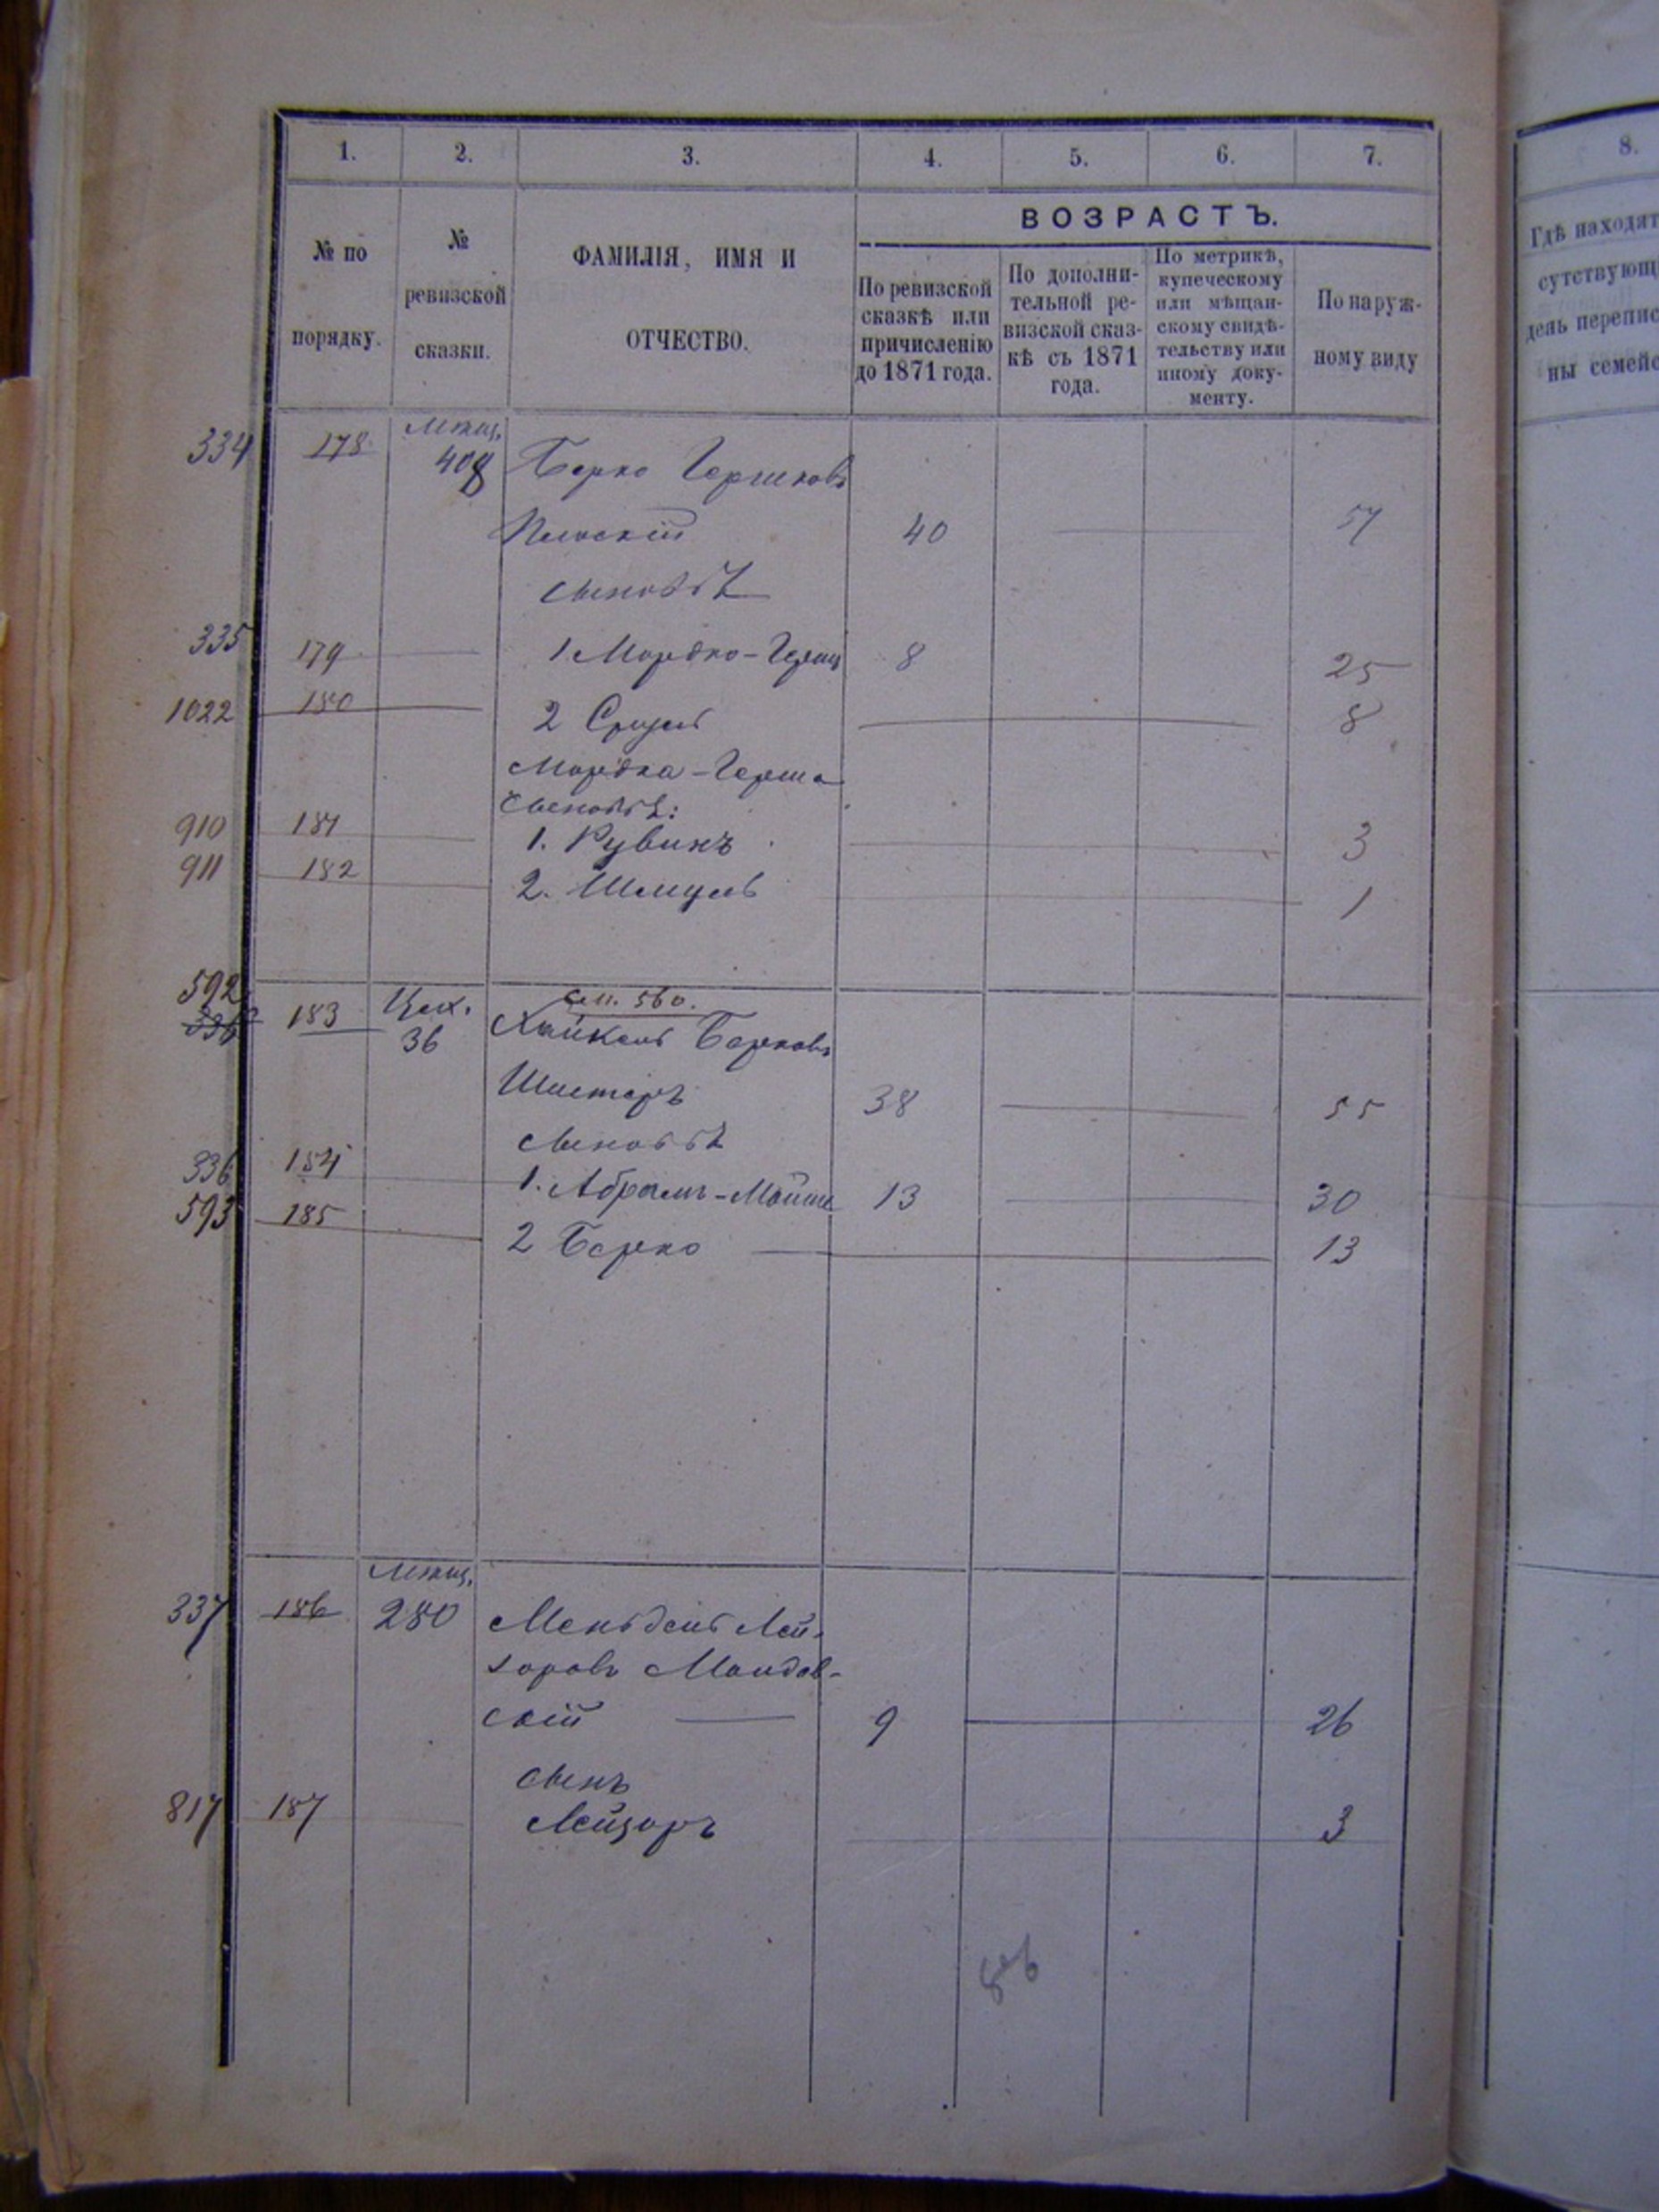 1. 2. 3. 4. 5. 6. 7.
№ по порядку.
№ ревизской сказки.
ФАМИЛІЯ, ИМЯ И
ОТЧЕСТВО.
ВОЗРАСТЪ.
По ревизской
сказкѣ или
причисленію
до 1871 года.
По дополни-
тельной ре-
визской сказ-
кѣ съ 1871
года.
По метрикѣ,
купеческому
или мѣщан-
скому свидѣ-
тельству или
иному доку-
менту.
По наруж-
ному виду
8.
Гдѣ находят
сутствующ
день перепис
ны семейс
мѣщ.
334 178 408 Берко Гершковъ
40 57
сыновья
335 179 1. Мордко-Герш 8 25
1022 180 2 Сруль 8
Мордка-Герша
сыновья:
910 181 1. Рувинъ 3
911 182 2. Шмуль 1
592 сем. 560.
336 183 Цех. Хайкель Берковъ
36
Шистеръ 38 55
сыновья
336 184 1. Абрамъ-Мойше 13 30
593 185 2 Берко 13
мѣщ.
337 186 280 Мендель Лей-
зоровъ Мандов-
скій 9 26
сынъ
817 187 Лейзоръ 3